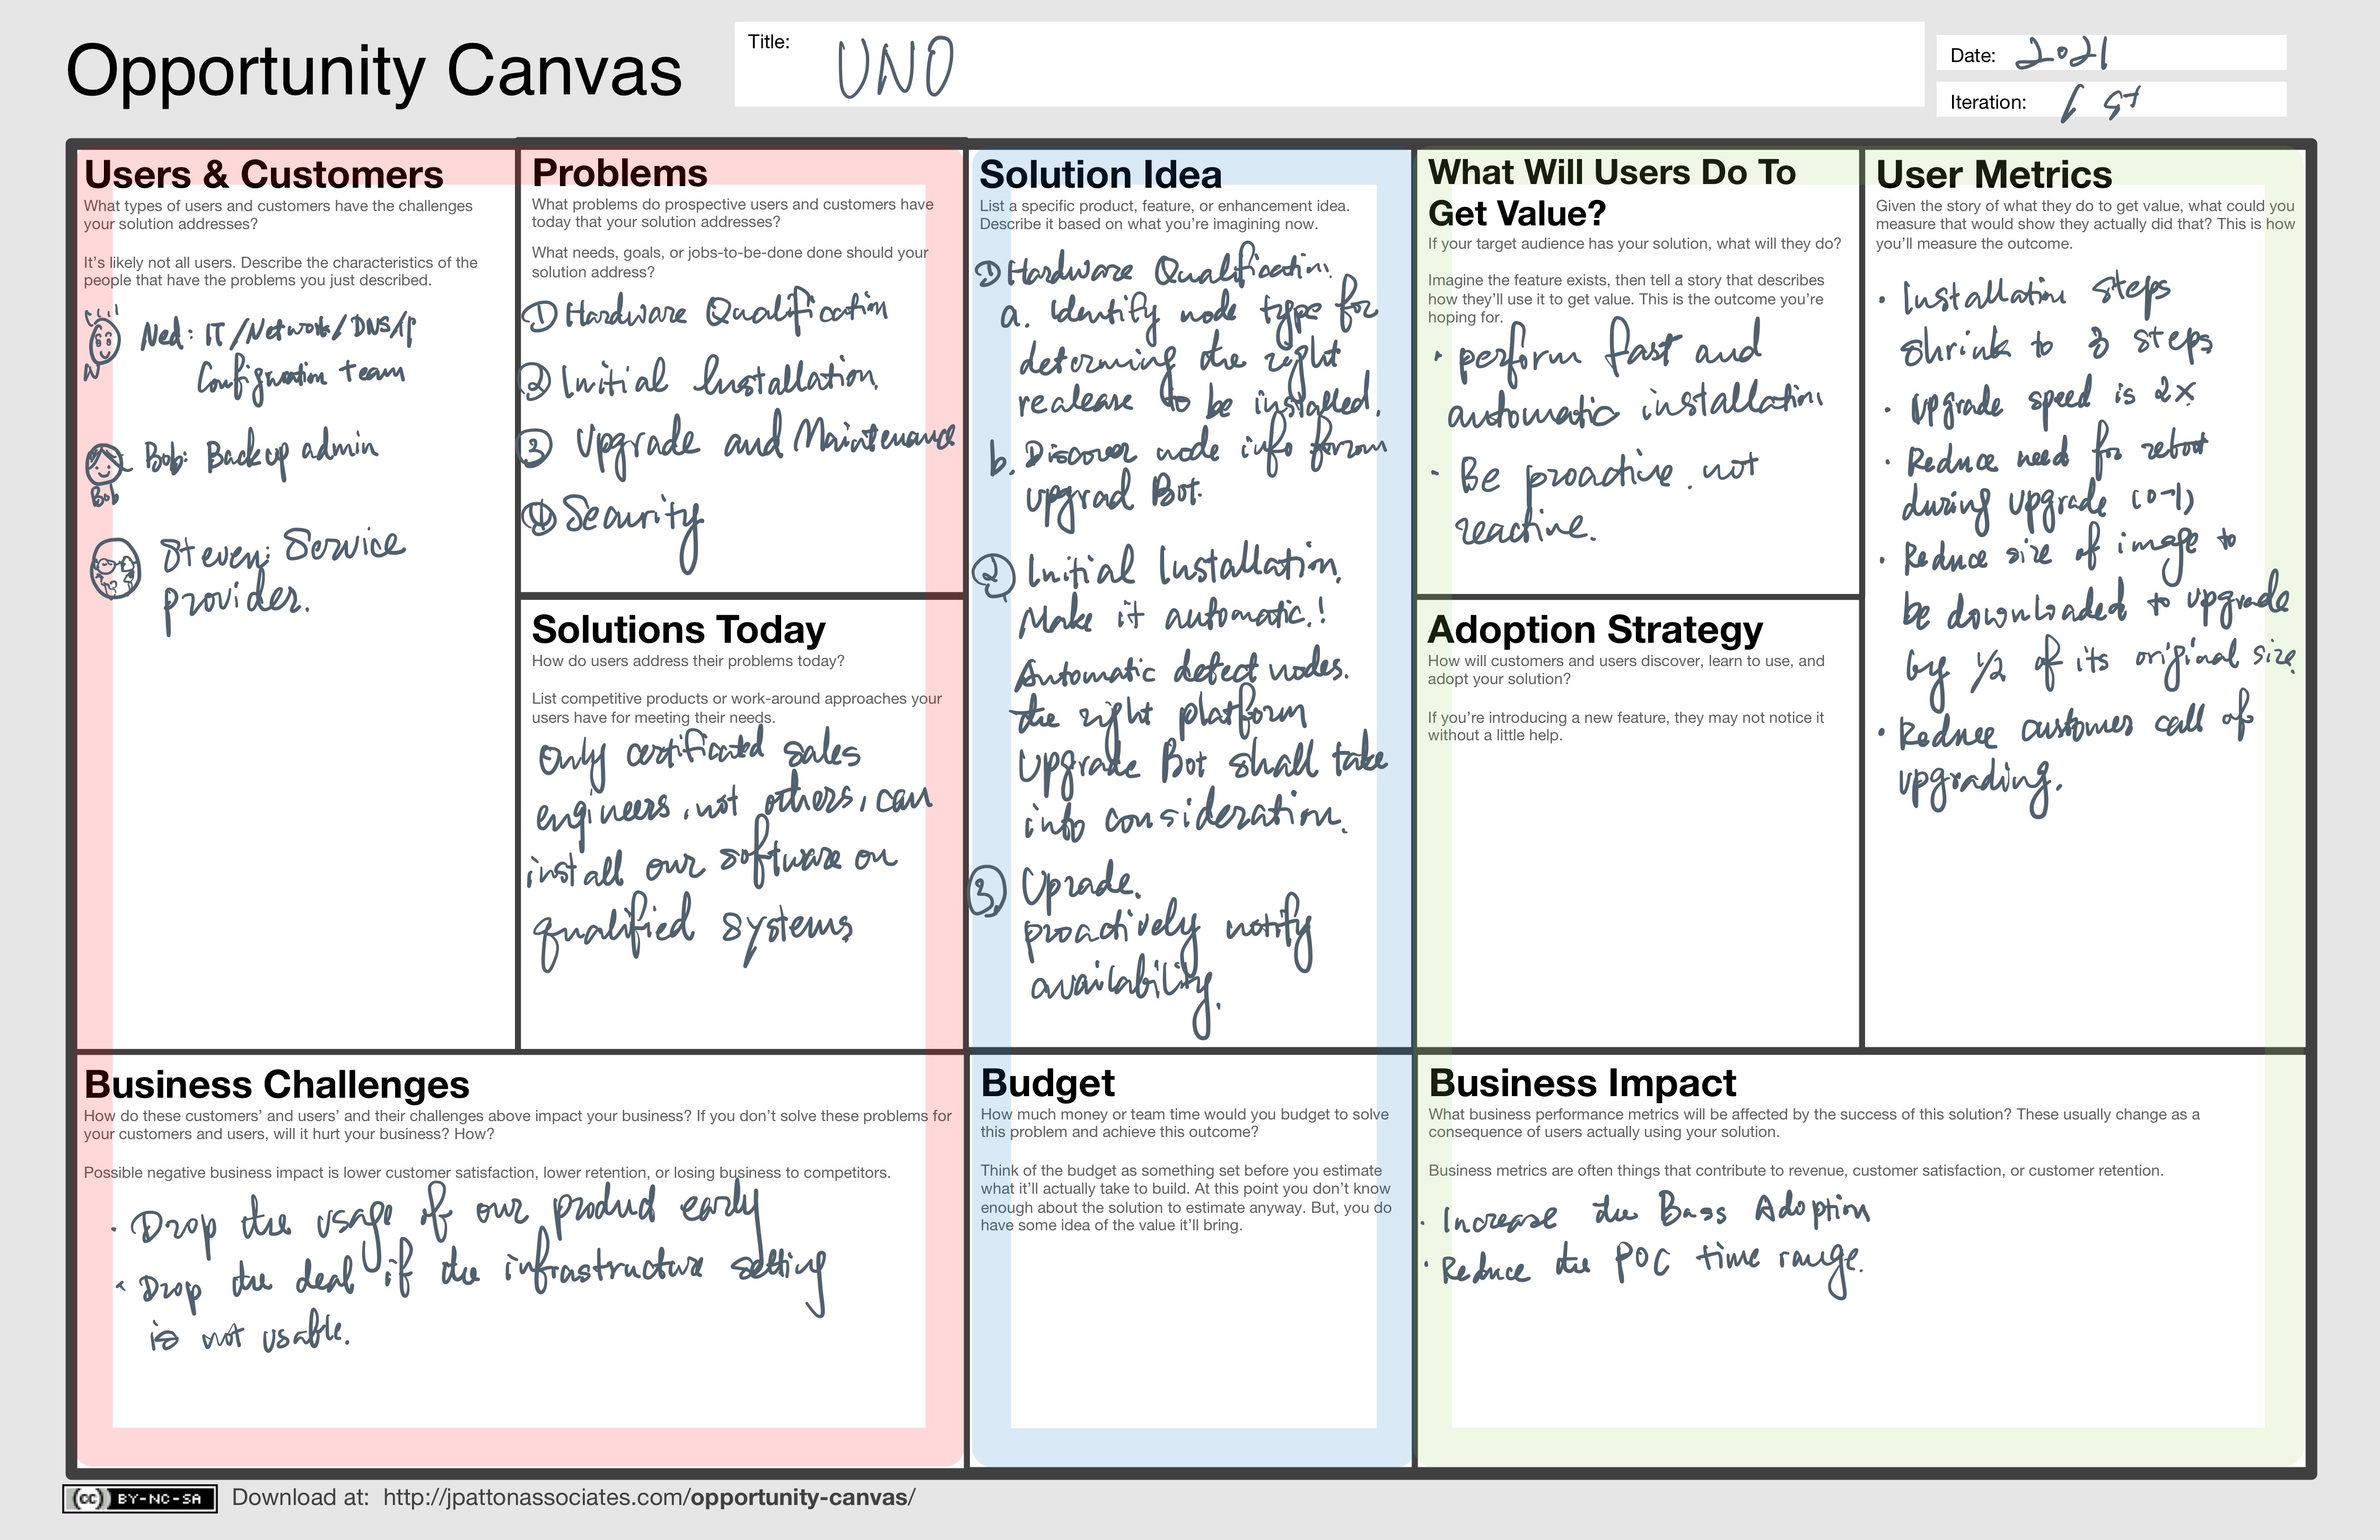 Opportunity Canvas
Title: UNO
Date: 2021
Iteration: 1 st
Users & Customers
What types of users and customers have the challenges
your solution addresses?
It's likely not all users. Describe the characteristics of the
people that have the problems you just described.
Ned: IT/Network/DNS/IP
Configuration team
Bob: Backup admin
Bob
Steven: Service
provider.
Problems
What problems do prospective users and customers have
today that your solution addresses?
What needs, goals, or jobs-to-be-done done should your
solution address?
① Hardware Qualification
② Initial Installation
③ Upgrade and Maintenance
④ Security
Solutions Today
How do users address their problems today?
List competitive products or work-around approaches your
users have for meeting their needs.
Only certificated sales
engineers, not others, can
install our software on
qualified systems
Solution Idea
List a specific product, feature, or enhancement idea.
Describe it based on what you're imagining now.
① Hardware Qualification.
a. Identify node type for
determing the right
realease to be installed.
b. Discover node info from
upgrad Bot.
② Initial Installation.
Make it automatic!
Automatic detect nodes.
the right platform
Upgrade Bot shall take
into consideration.
③ Uprade.
proactively notify
availability.
What Will Users Do To
Get Value?
If your target audience has your solution, what will they do?
Imagine the feature exists, then tell a story that describes
how they'll use it to get value. This is the outcome you're
hoping for.
• perform fast and
automatic installation
• Be proactive. not
reactive.
Adoption Strategy
How will customers and users discover, learn to use, and
adopt your solution?
If you're introducing a new feature, they may not notice it
without a little help.
User Metrics
Given the story of what they do to get value, what could you
measure that would show they actually did that? This is how
you'll measure the outcome.
• Installation steps
shrink to 3 steps
• Upgrade speed is 2x
• Reduce need for reboot
during upgrade (0-1)
• Reduce size of image to
be downloaded to upgrade
by 1/2 of its original size
• Reduce customer call of
upgrading.
Business Challenges
How do these customers' and users' and their challenges above impact your business? If you don't solve these problems for
your customers and users, will it hurt your business? How?
Possible negative business impact is lower customer satisfaction, lower retention, or losing business to competitors.
• Drop the usage of our product early
• Drop the deal if the infrastructure setting
is not usable.
Budget
How much money or team time would you budget to solve
this problem and achieve this outcome?
Think of the budget as something set before you estimate
what it'll actually take to build. At this point you don't know
enough about the solution to estimate anyway. But, you do
have some idea of the value it'll bring.
Business Impact
What business performance metrics will be affected by the success of this solution? These usually change as a
consequence of users actually using your solution.
Business metrics are often things that contribute to revenue, customer satisfaction, or customer retention.
• Increase the Bass Adoption
• Reduce the POC time range.
(cc) BY-NC-SA
Download at: http://jpattonassociates.com/opportunity-canvas/